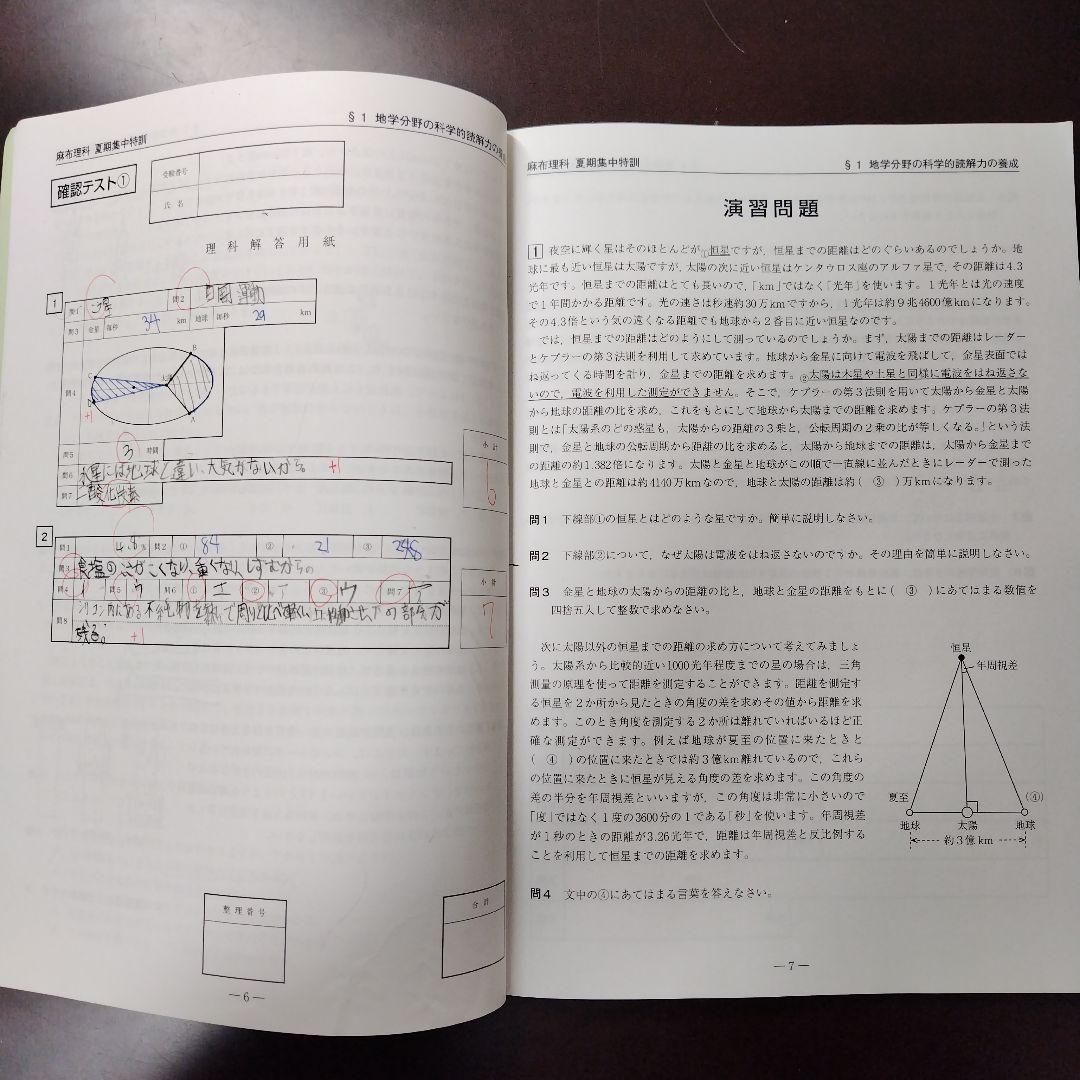 麻布理科 夏期集中特訓
§1 地学分野の科学的読解力の養
確認テスト①
受験番号
氏名
理科解答用紙
1
問1
問2 自転運動
問3 金星 毎秒 34 km 地球 毎秒 29 km
問4
A
B
C
D
太陽
+1
問5 3 時間
問6 水星には地球と違い、大気がないから。 +1
問7 二酸化炭素
小計
6
2
問1 4.8 % 問2 ① 84 ② 21 ③
問3 食塩の
問4 問5 ウ 問6 ① エ ② ア ③ ウ 問7 ア
問8
残る。 +1
小計
7
整理番号
合計
―6―
麻布理科 夏期集中特訓
§1 地学分野の科学的読解力の養成
演習問題
1 夜空に輝く星はそのほとんどが①恒星ですが，恒星までの距離はどのぐらいあるのでしょうか。地
球に最も近い恒星は太陽ですが，太陽の次に近い恒星はケンタウロス座のアルファ星で，その距離は4.3
光年です。恒星までの距離はとても長いので，「km」ではなく「光年」を使います。1光年とは光の速度
で1年間かかる距離です。光の速さは秒速約30万kmですから，1光年は約9兆4600億kmになります。
その4.3倍という気の遠くなる距離でも地球から2番目に近い恒星なのです。
では，恒星までの距離はどのようにして測っているのでしょうか。まず，太陽までの距離はレーダー
とケプラーの第3法則を利用して求めています。地球から金星に向けて電波を飛ばして，金星表面では
ね返ってくる時間を計り，金星までの距離を求めます。②太陽は木星や土星と同様に電波をはね返さな
いので，電波を利用した測定ができません。そこで，ケプラーの第3法則を用いて太陽から金星と太陽
から地球の距離の比を求め，これをもとにして地球から太陽までの距離を求めます。ケプラーの第3法
則とは「太陽系のどの惑星も，太陽からの距離の3乗と，公転周期の2乗の比が等しくなる。」という法
則で，金星と地球の公転周期から距離の比を求めると，太陽から地球までの距離は，太陽から金星まで
の距離の約1.382倍になります。太陽と金星と地球がこの順で一直線に並んだときにレーダーで測った
地球と金星との距離は約4140万kmなので，地球と太陽の距離は約（ ③ ）万kmになります。
問1 下線部①の恒星とはどのような星ですか。簡単に説明しなさい。
問2 下線部②について，なぜ太陽は電波をはね返さないのですか。その理由を簡単に説明しなさい。
問3 金星と地球の太陽からの距離の比と，地球と金星の距離をもとに（ ③ ）にあてはまる数値を
四捨五入して整数で求めなさい。
次に太陽以外の恒星までの距離の求め方について考えてみましょ
う。太陽系から比較的近い1000光年程度までの星の場合は，三角
測量の原理を使って距離を測定することができます。距離を測定す
る恒星を2か所から見たときの角度の差を求めその値から距離を求
めます。このとき角度を測定する2か所は離れていればいるほど正
確な測定ができます。例えば地球が夏至の位置に来たときと
（ ④ ）の位置に来たときでは約3億km離れているので，これら
の位置に来たときに恒星が見える角度の差を求めます。この角度の
差の半分を年周視差といいますが，この角度は非常に小さいので
「度」ではなく1度の3600分の1である「秒」を使います。年周視差
が1秒のときの距離が3.26光年で，距離は年周視差と反比例する
ことを利用して恒星までの距離を求めます。
恒星
年周視差
夏至
（④）
地球 太陽 地球
約3億km
問4 文中の④にあてはまる言葉を答えなさい。
―7―